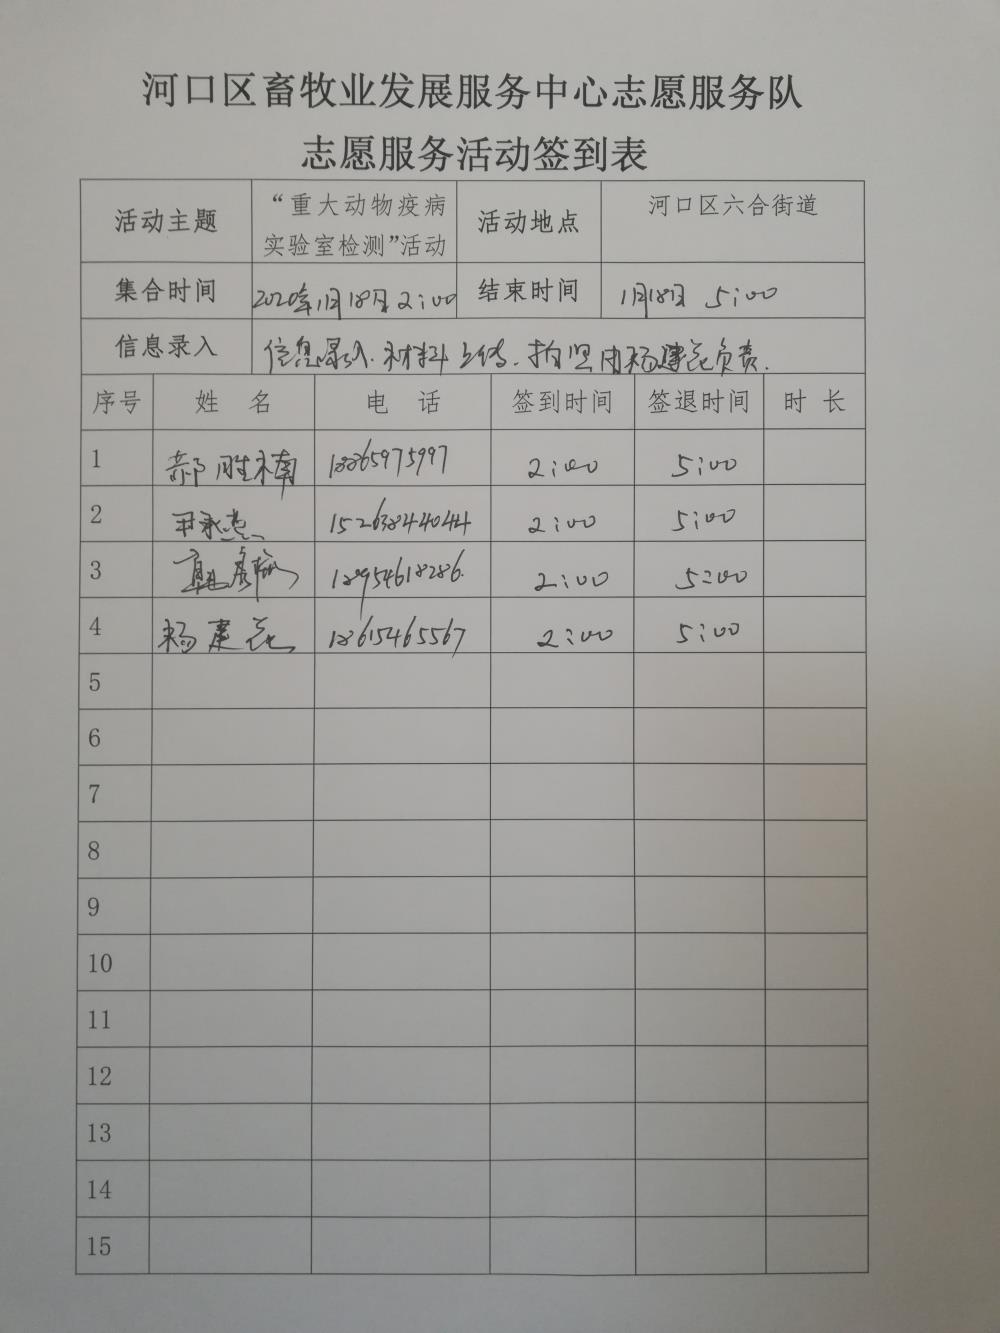 河口区畜牧业发展服务中心志愿服务队
志愿服务活动签到表
活动主题 “重大动物疫病 活动地点 河口区六合街道
实验室检测”活动
集合时间 2020年1月18日 2:00 结束时间 1月18日 5:00
信息录入 信息录入.材料上传.拍照由杨建花负责.
序号 姓 名 电 话 签到时间 签退时间 时 长
1 郝胜楠 18865975997 2:00 5:00
2 15263844044 2:00 5:00
3 18954618286. 2:00 5:00
4 杨建花 18615465567 2:00 5:00
5
6
7
8
9
10
11
12
13
14
15